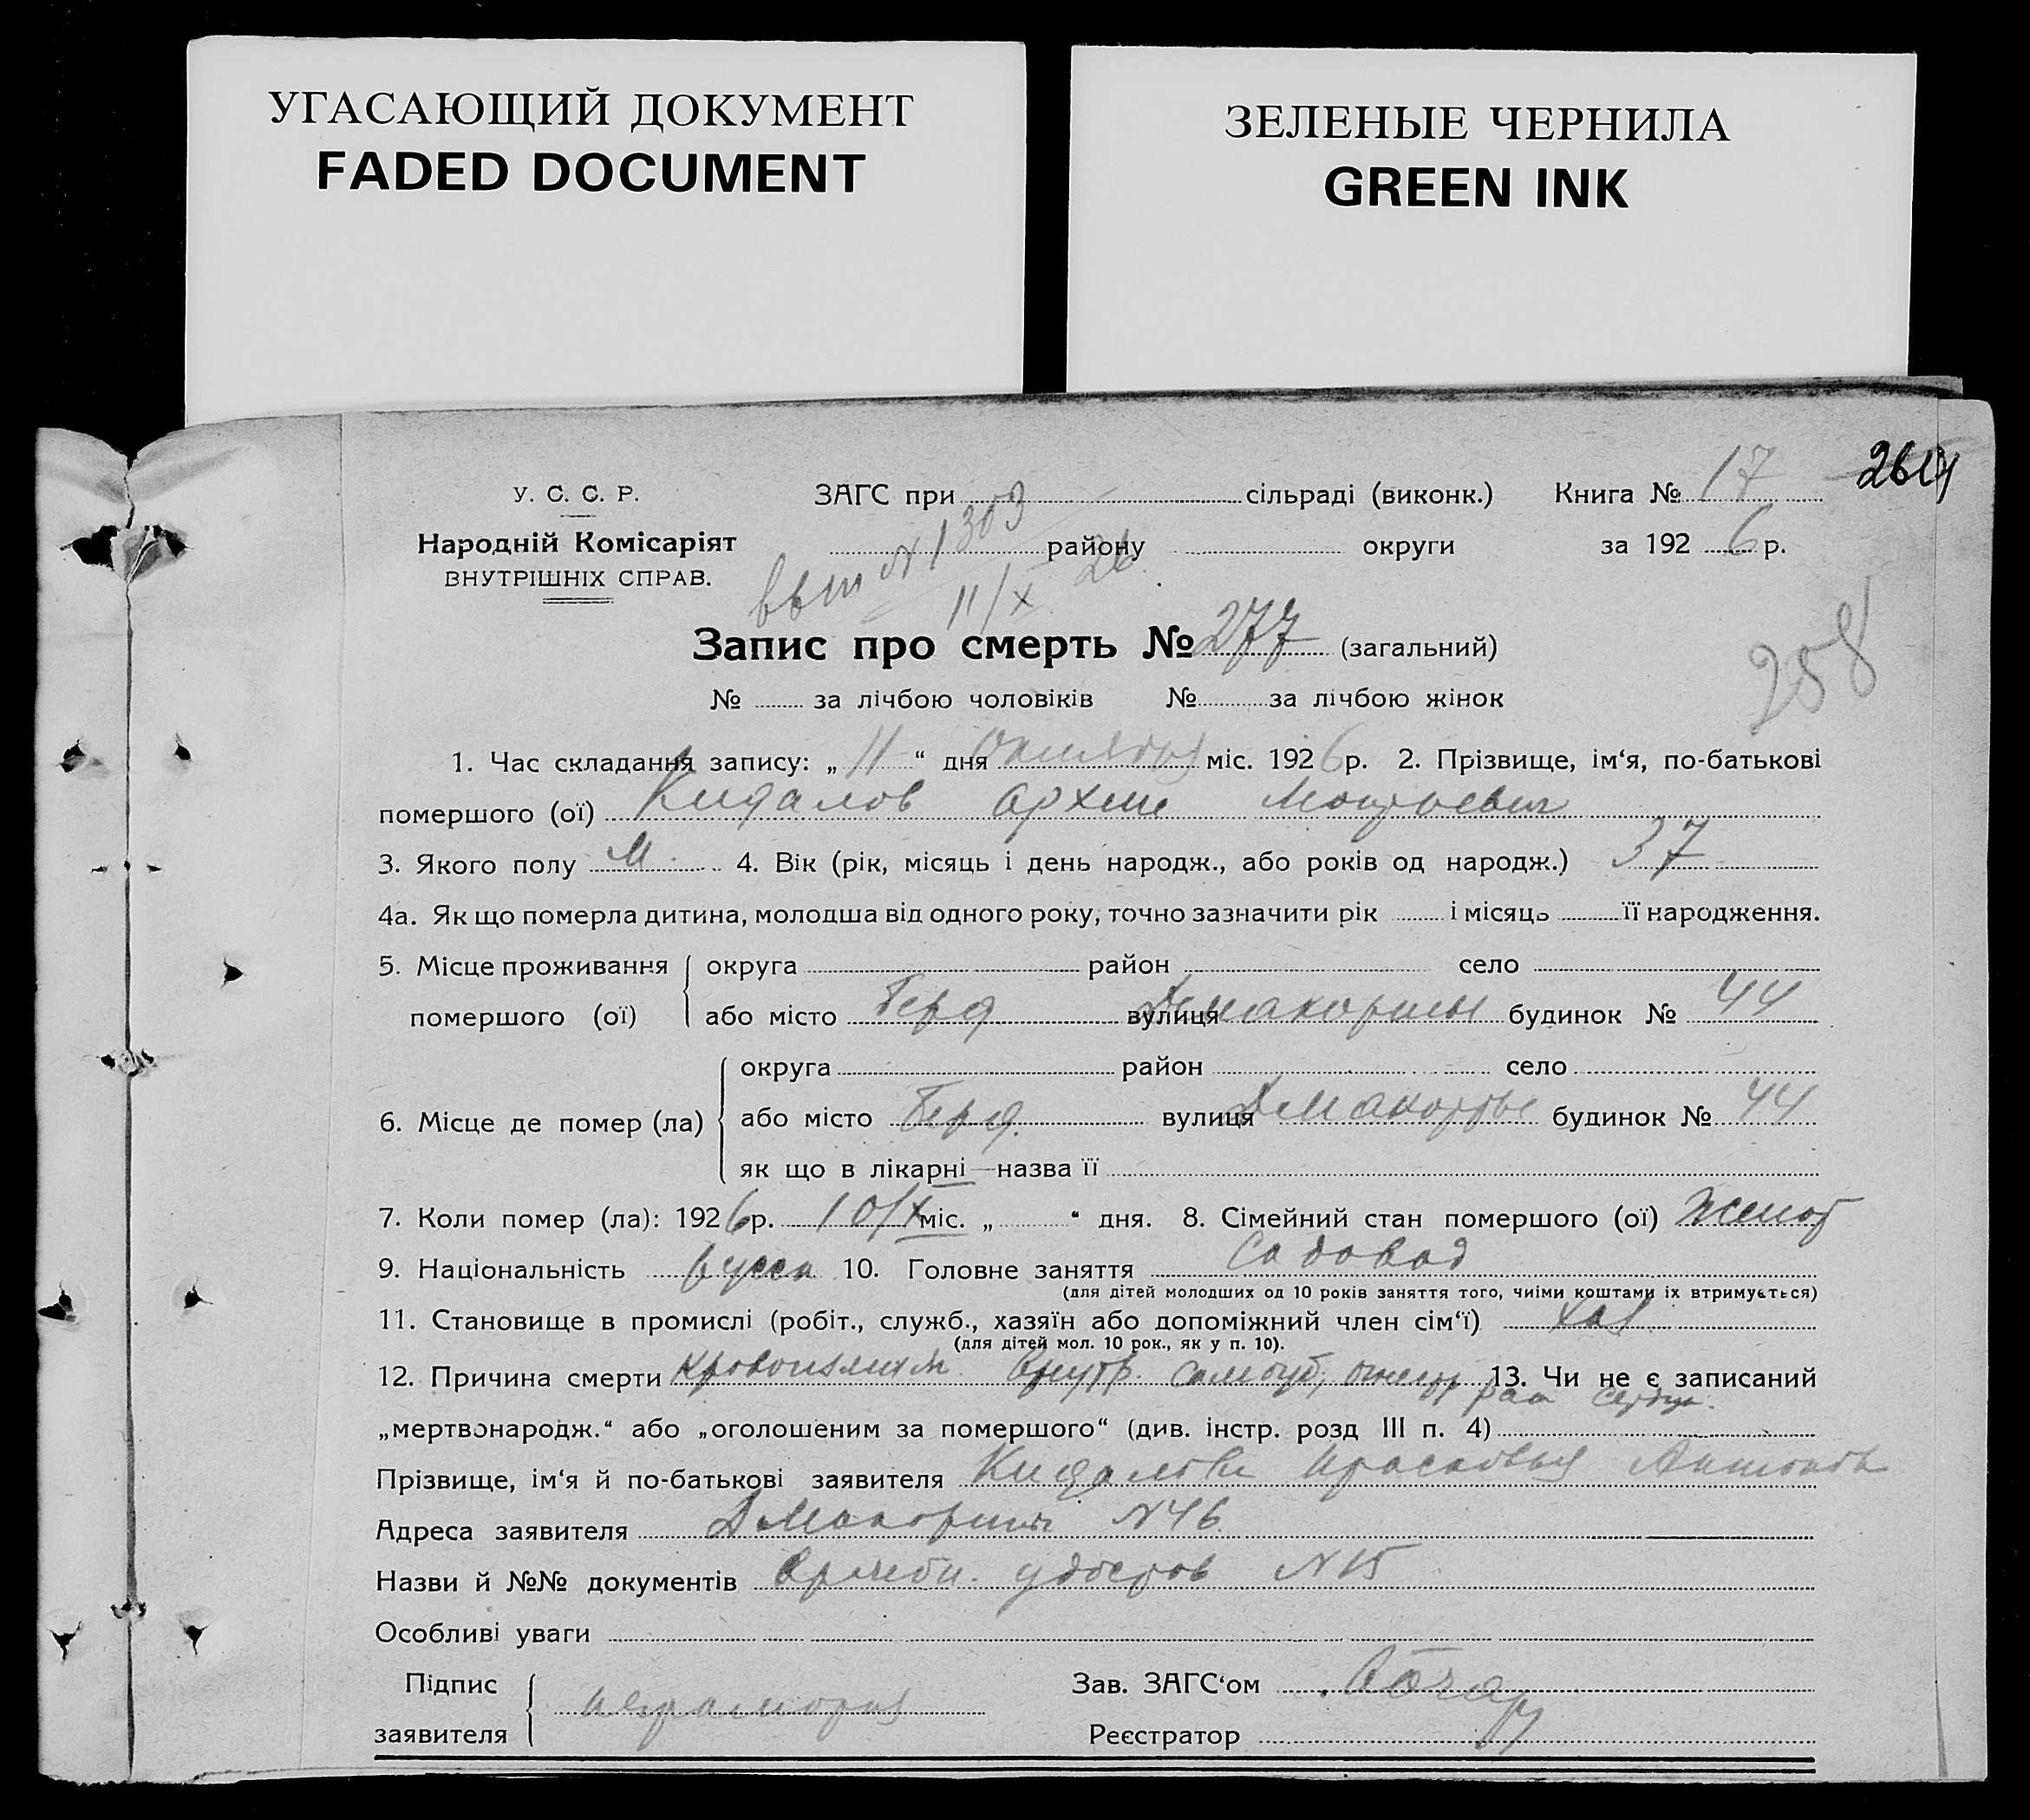 УГАСАЮЩИЙ ДОКУМЕНТ
FADED DOCUMENT
ЗЕЛЕНЫЕ ЧЕРНИЛА
GREEN INK
У. С. С. Р.
Народній Комісаріят
ВНУТРІШНІХ СПРАВ.
ЗАГС при сільраді (виконк.) Книга № 17
району округи за 1926 р.
N 1303
11/X 26
Запис про смерть № 277 (загальний)
258
№ за лічбою чоловіків № за лічбою жінок
1. Час складання запису: „ 11 “ дня Октября міс. 1926 р. 2. Прізвище, ім‘я, по-батькові
помершого (ої) Кидалов Архип
3. Якого полу М. 4. Вік (рік, місяць і день народж., або років од народж.) 37
4а. Як що померла дитина, молодша від одного року, точно зазначити рік і місяць її народження.
5. Місце проживання помершого (ої) округа район село
або місто Берд вулиця будинок № 44
6. Місце де помер (ла) округа район село
або місто Берд. вулиця будинок № 44
як що в лікарні—назва її
7. Коли помер (ла): 1926 р. 10/X міс. „ “ дня. 8. Сімейний стан помершого (ої) женат
9. Національність русск 10. Головне заняття садовод
(для дітей молодших од 10 років заняття того, чиїми коштами їх втримується)
11. Становище в промислі (робіт., служб., хазяїн або допоміжний член сім‘ї) хоз.
(для дітей мол. 10 рок., як у п. 10).
12. Причина смерти кровоизлиян. внутр. самоуб, рана сердца. 13. Чи не є записаний
„мертвонародж.“ або „оголошеним за помершого“ (див. інстр. розд III п. 4)
Прізвище, ім‘я й по-батькові заявителя Кидалова Прасковья
Адреса заявителя N 46
Назви й №№ документів Врачебн. удостов N 15
Особливі уваги
Підпис заявителя неграмотная
Зав. ЗАГС‘ом
Реєстратор